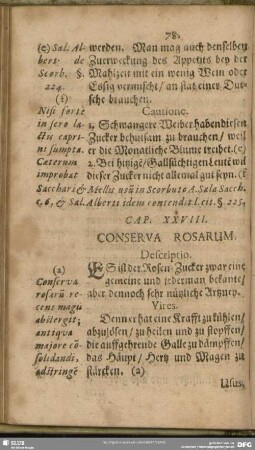 78.
(e) Sal. Al-
berti de
Scorb. §.
224.
(f)
Nisi forte
in sero la-
ctis capri-
ni sumpta.
Cæterum
improbat
werden. Man mag auch denselben
Zuerweckung des Appetits bey der
Mahlzeit mit ein wenig Wein oder
Essig vermischt/ an stat einer Dut-
sche brauchen.
Cautione.
1. Schwangere Weiber haben diesen
Zucker behutsam zu brauchen/ weil
er die Monatliche Blume treibet. (e)
2. Bey hitzigē/ Gallsüchtigen Leutē wil
dieser Zucker nicht allemal gut seyn. (f)
Sacchari & Mellis usū in Scorbuto A. Sala Sacch.
c. 6, & Sal. Alberti idem contendit l. cit. § 225.
CAP. XXVIII.
CONSERVA ROSARUM.
Descriptio.
(a)
Conserva
rosarū re-
cens magis
abstergit;
antiqva
majore cō-
solidandi,
adstringē-
ES ist der Rosen-Zucker zwar eine
gemeine und jederman bekante/
aber dennoch sehr nützliche Artzney.
Vires.
Denn er hat eine Krafft zu kühlen/
abzulösen/ zu heilen und zu stopffen/
die auffgehrende Galle zu dämpffen/
das Häupt/ Hertz und Magen zu
stärcken. (a)
Usus,